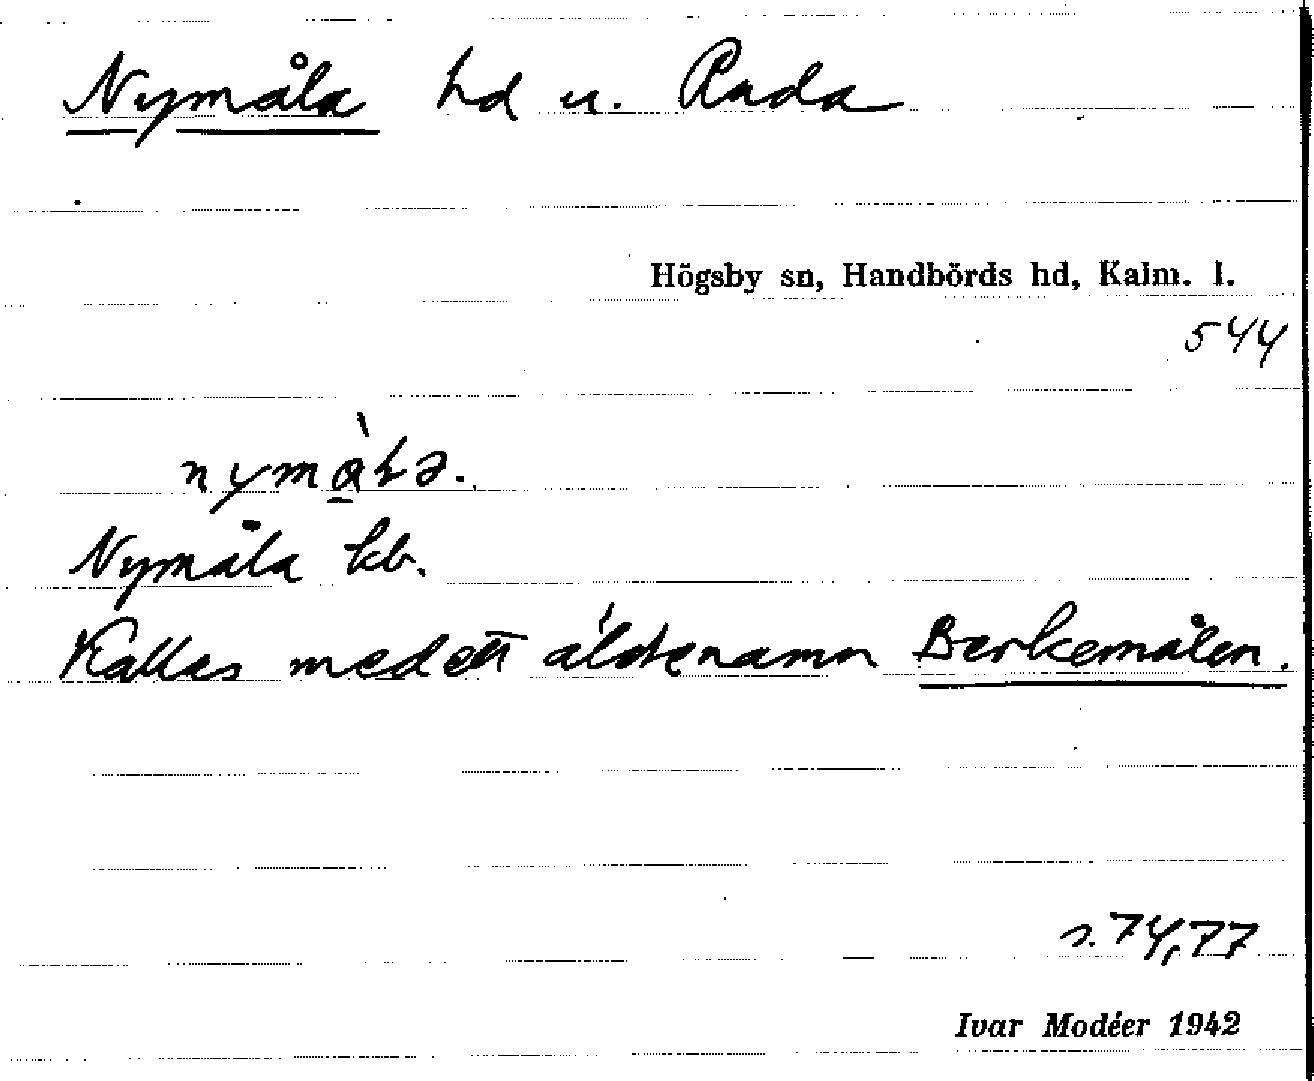 Nymåla hd u. Ruda
Högsby sn, Handbörds hd, Kalm. l.
544
Nymåla kb.
Kallas med ett äldre namn Berkemålen.
s. 74,77
Ivar Modéer 1942